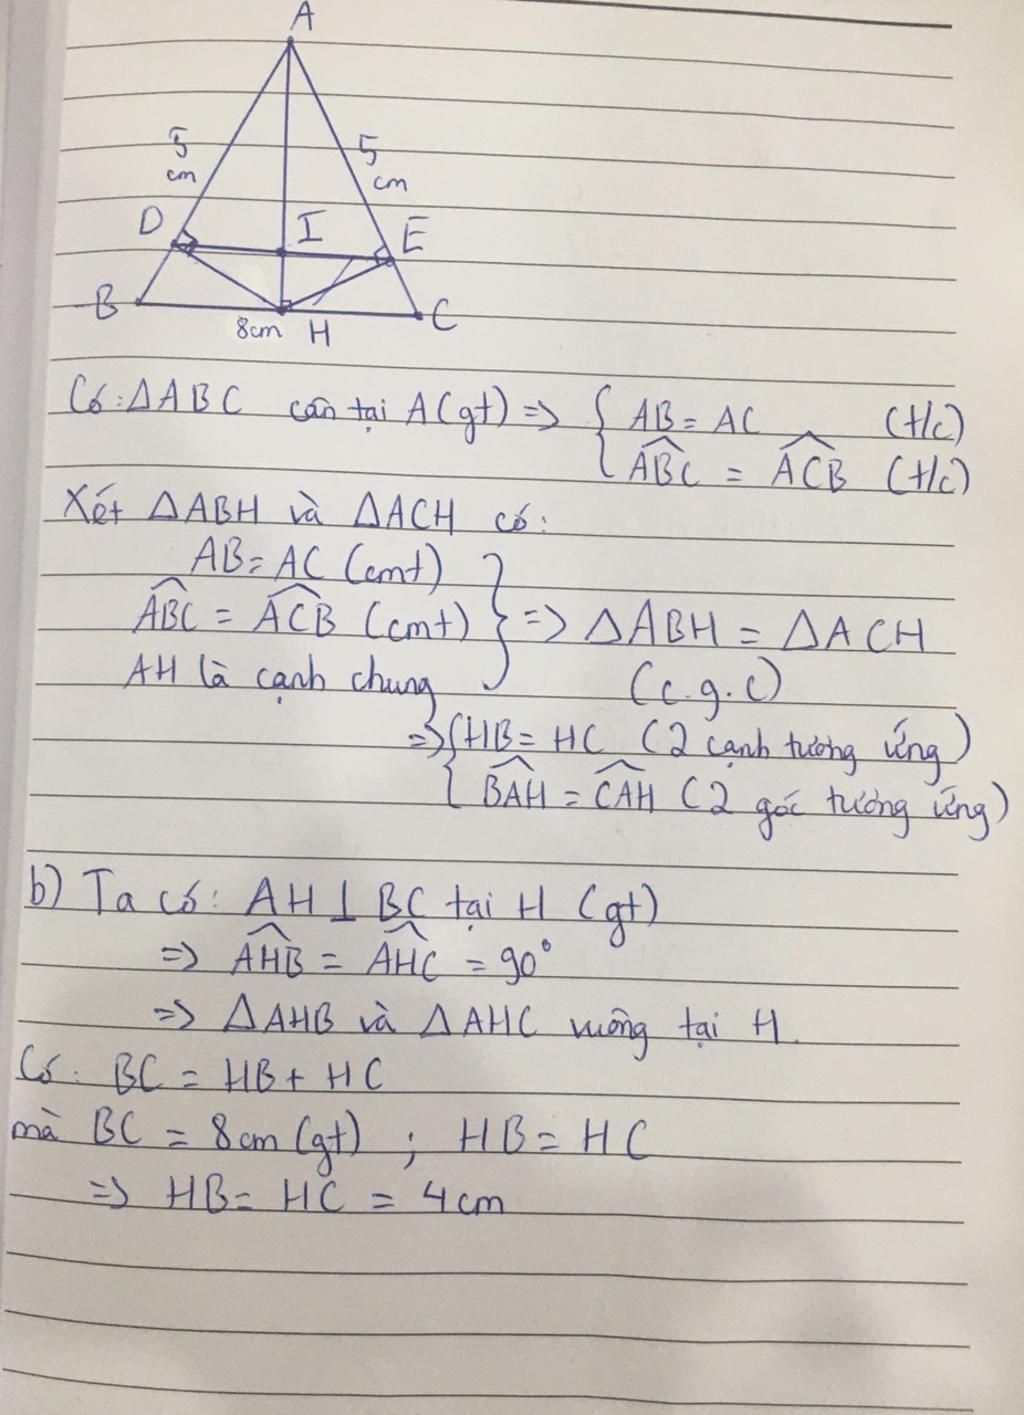 A
5
cm
5
cm
D
I
E
B
8cm
H
C
Có: ΔABC cân tại A (gt) => { AB = AC (t/c)
{ \widehat{ABC} = \widehat{ACB} (t/c)
Xét ΔABH và ΔACH có:
AB = AC (cmt)
\widehat{ABC} = \widehat{ACB} (cmt) } => ΔABH = ΔACH
AH là cạnh chung (c.g.c)
=> { HB = HC (2 cạnh tương ứng)
{ \widehat{BAH} = \widehat{CAH} (2 góc tương ứng)
b) Ta có: AH ⊥ BC tại H (gt)
=> \widehat{AHB} = \widehat{AHC} = 90°
=> ΔAHB và ΔAHC vuông tại H.
Có: BC = HB + HC
mà BC = 8cm (gt) ; HB = HC
=> HB = HC = 4cm